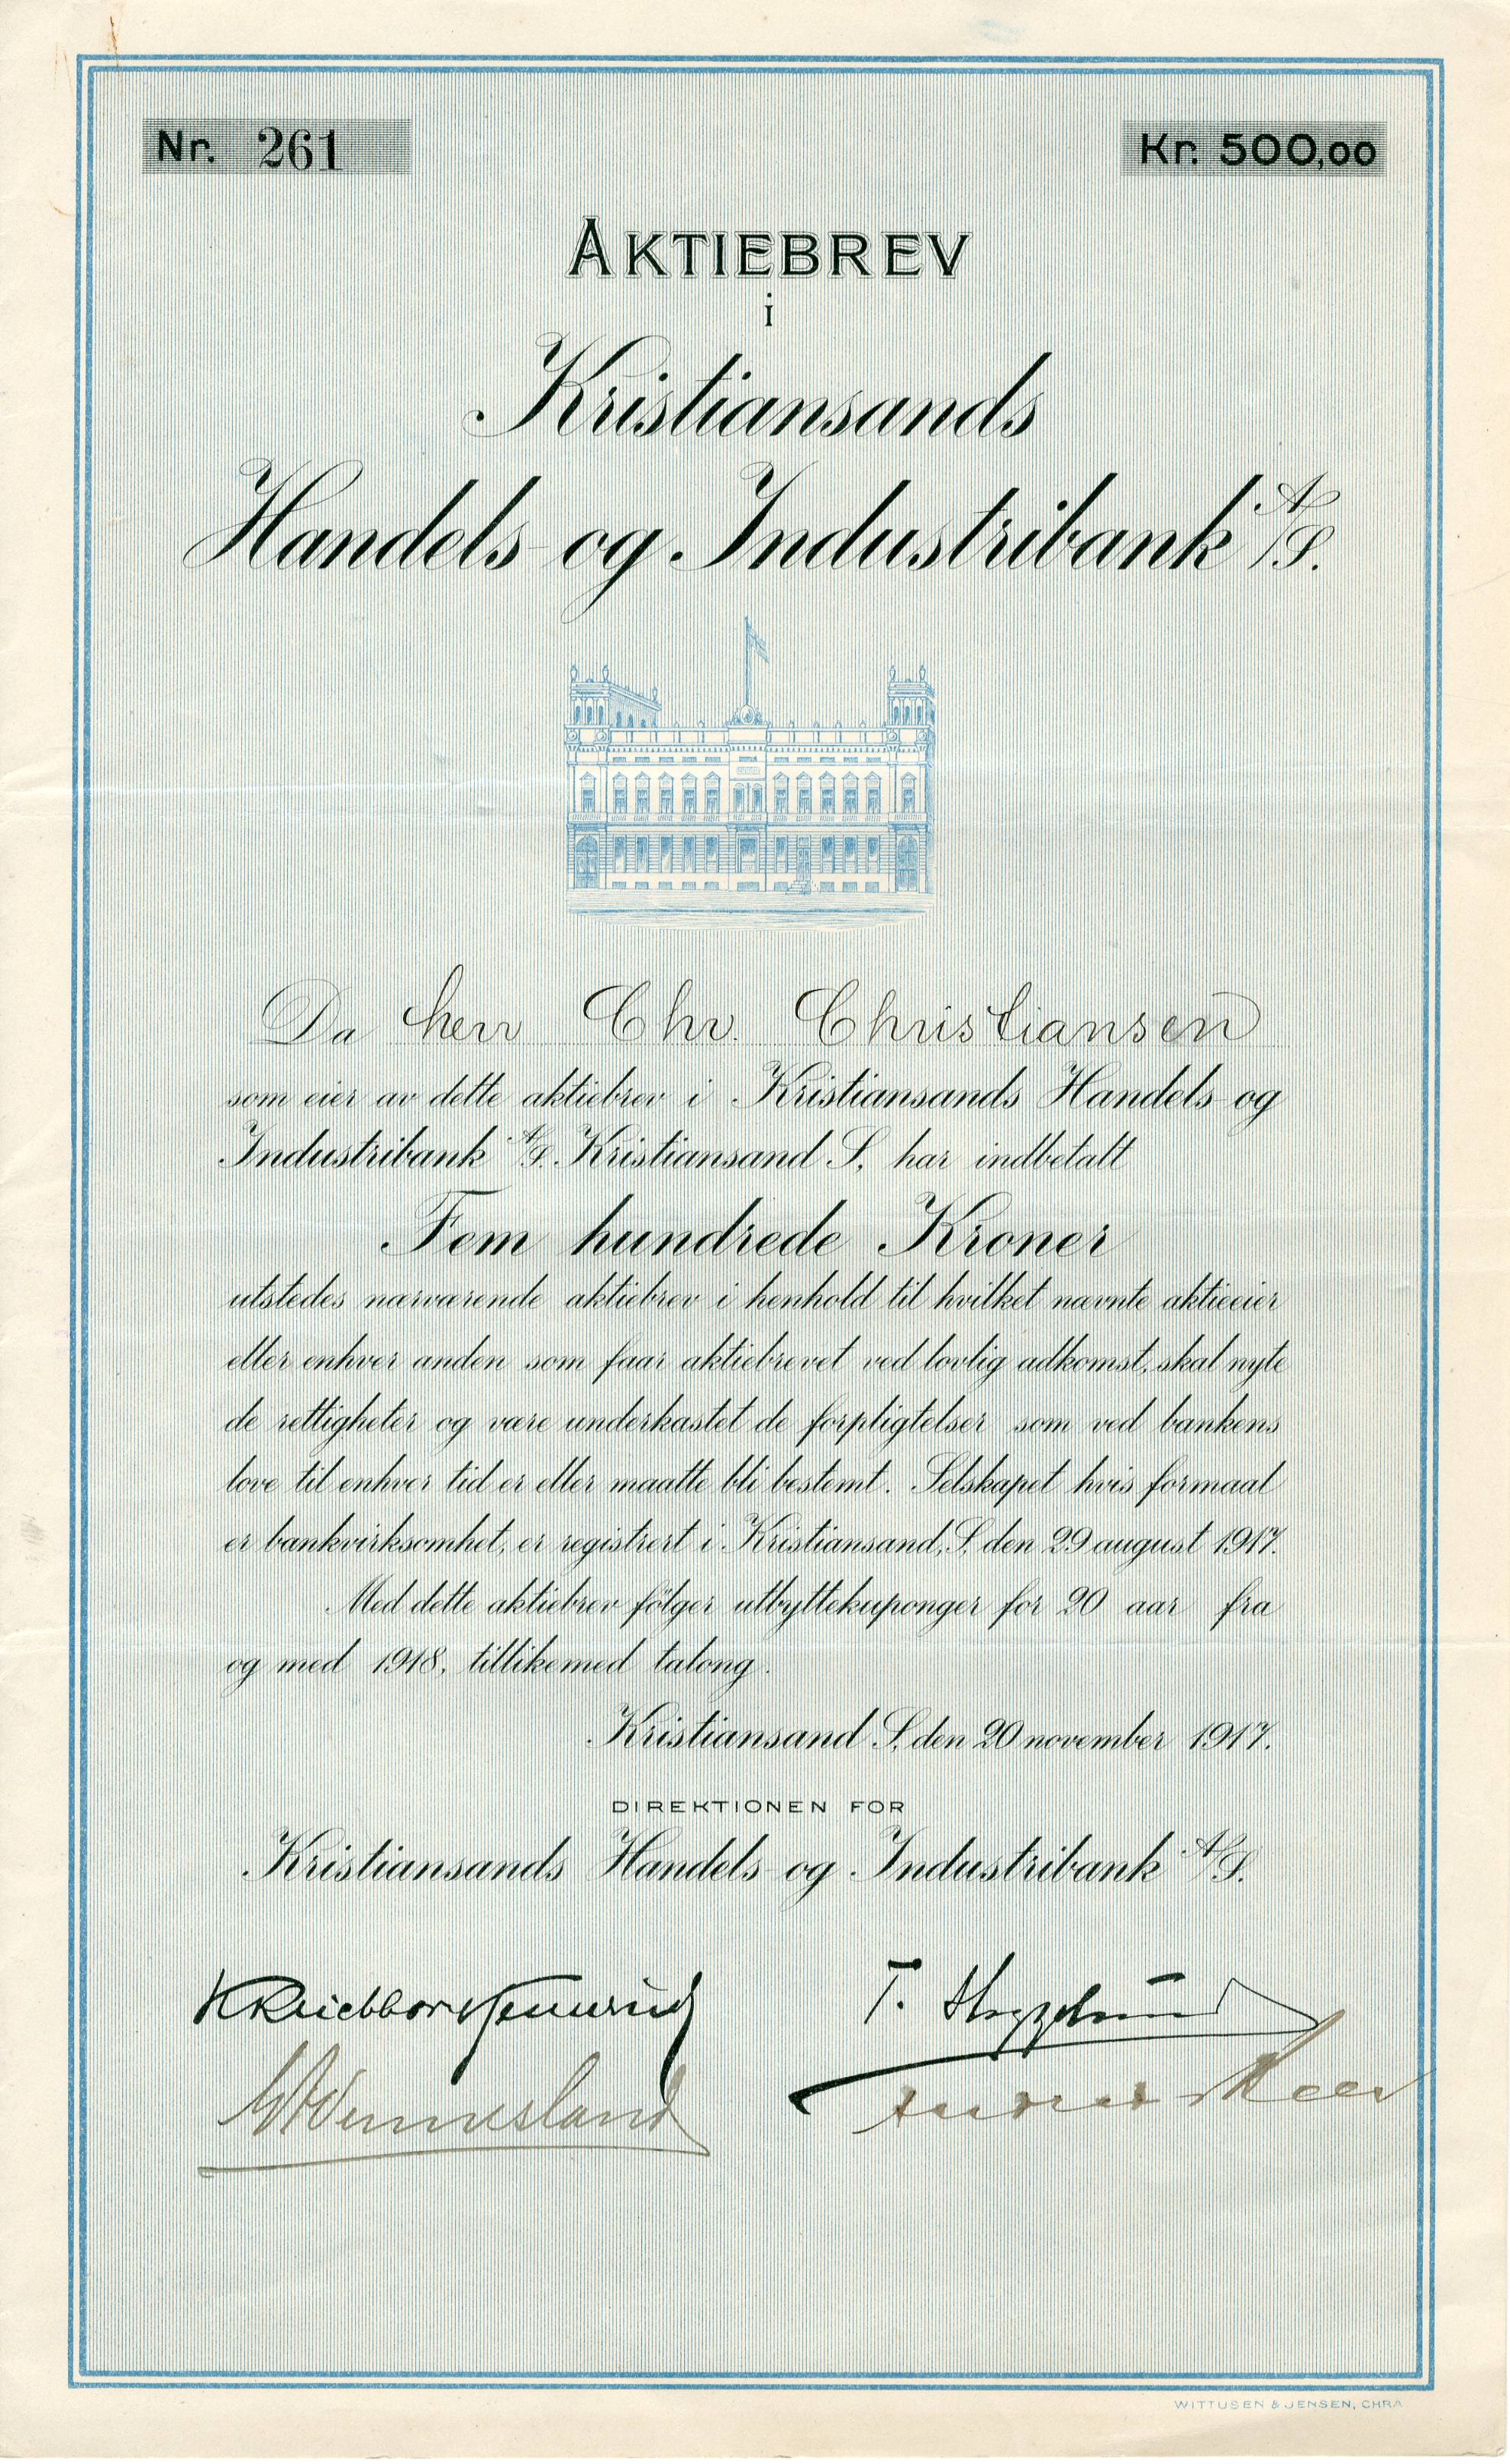 Nr. 261
Kr. 500,00
AKTIEBREV
i
Kristiansands
Handels- og Industribank A/S.
Da herr Chr. Christiansen
som eier av dette aktiebrev i Kristiansands Handels- og
Industribank A/S. Kristiansand S, har indbetalt
Fem hundrede Kroner
utstedes nærværende aktiebrev i henhold til hvilket nævnte aktieeier
eller enhver anden som faar aktiebrevet ved lovlig adkomst, skal nyte
de rettigheter og være underkastet de forpligtelser som ved bankens
love til enhver tid er eller maatte bli bestemt. Selskapet hvis formaal
er bankvirksomhet, er registrert i Kristiansand, S, den 29 august 1917.
Med dette aktiebrev følger utbyttekuponger for 20 aar fra
og med 1918, tillikemed talong.
Kristiansand S, den 20 november 1917.
DIREKTIONEN FOR
Kristiansands Handels- og Industribank A/S.
Vennesland
WITTUSEN & JENSEN, CHRA